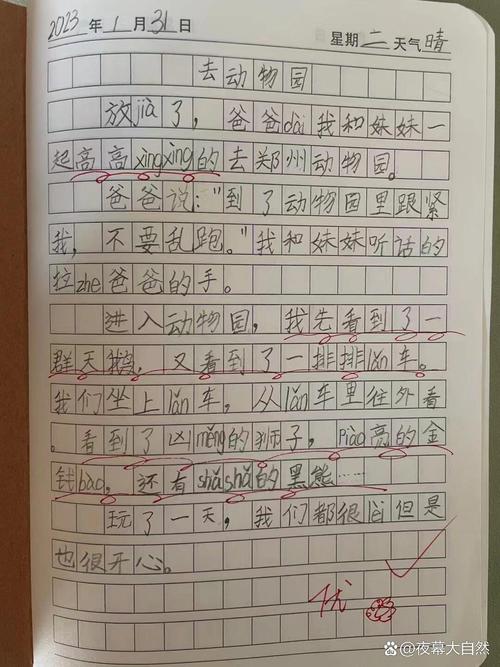 2023年1月31日 星期二天气晴
去动物园
放jià了，爸爸dài我和妹妹一
起高高xìngxìng的去郑州动物园。
爸爸说："到了动物园里跟紧
我，不要乱跑。"我和妹妹听话的
拉zhe爸爸的手。
进入动物园，我先看到了一
群天鹅，又看到了一排排lǎn车。
我们坐上lǎn车，从lǎn车里往外看
。看到了凶měng的狮子，piào亮的金
钱bào，还有shǎshǎ的黑熊……
玩了一天，我们都很但是
也很开心。
优
@夜幕大自然